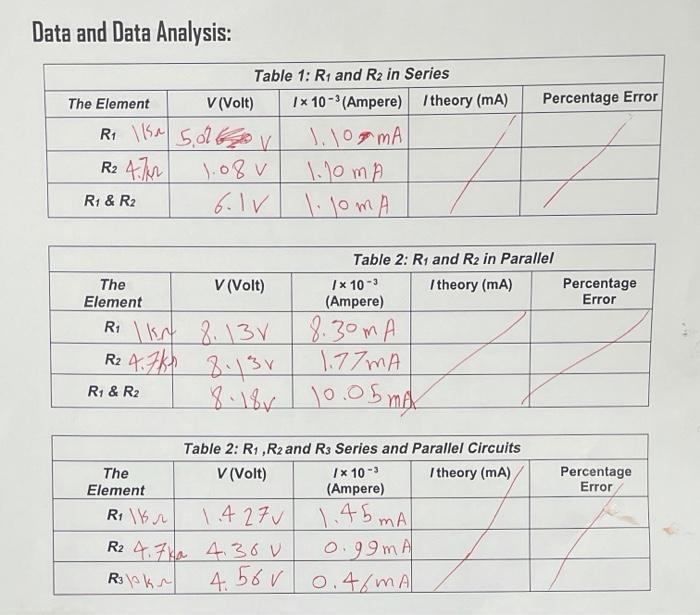 Data and Data Analysis:
Table 1: R1 and R2 in Series
The Element V (Volt) I × 10⁻³ (Ampere) I theory (mA) Percentage Error
R1 1kΩ 5.02 V 1.10 mA
R2 4.7kΩ 1.08 V 1.10 mA
R1 & R2 6.1V 1.10 mA
Table 2: R1 and R2 in Parallel
The Element V (Volt) I × 10⁻³ (Ampere) I theory (mA) Percentage Error
R1 1kΩ 8.13V 8.30 mA
R2 4.7kΩ 8.13V 1.77mA
R1 & R2 8.18V 10.05 mA
Table 2: R1 ,R2 and R3 Series and Parallel Circuits
The Element V (Volt) I × 10⁻³ (Ampere) I theory (mA) Percentage Error
R1 1kΩ 1.427V 1.45 mA
R2 4.7kΩ 4.36 V 0.99mA
R3 10kΩ 4.56 V 0.46mA